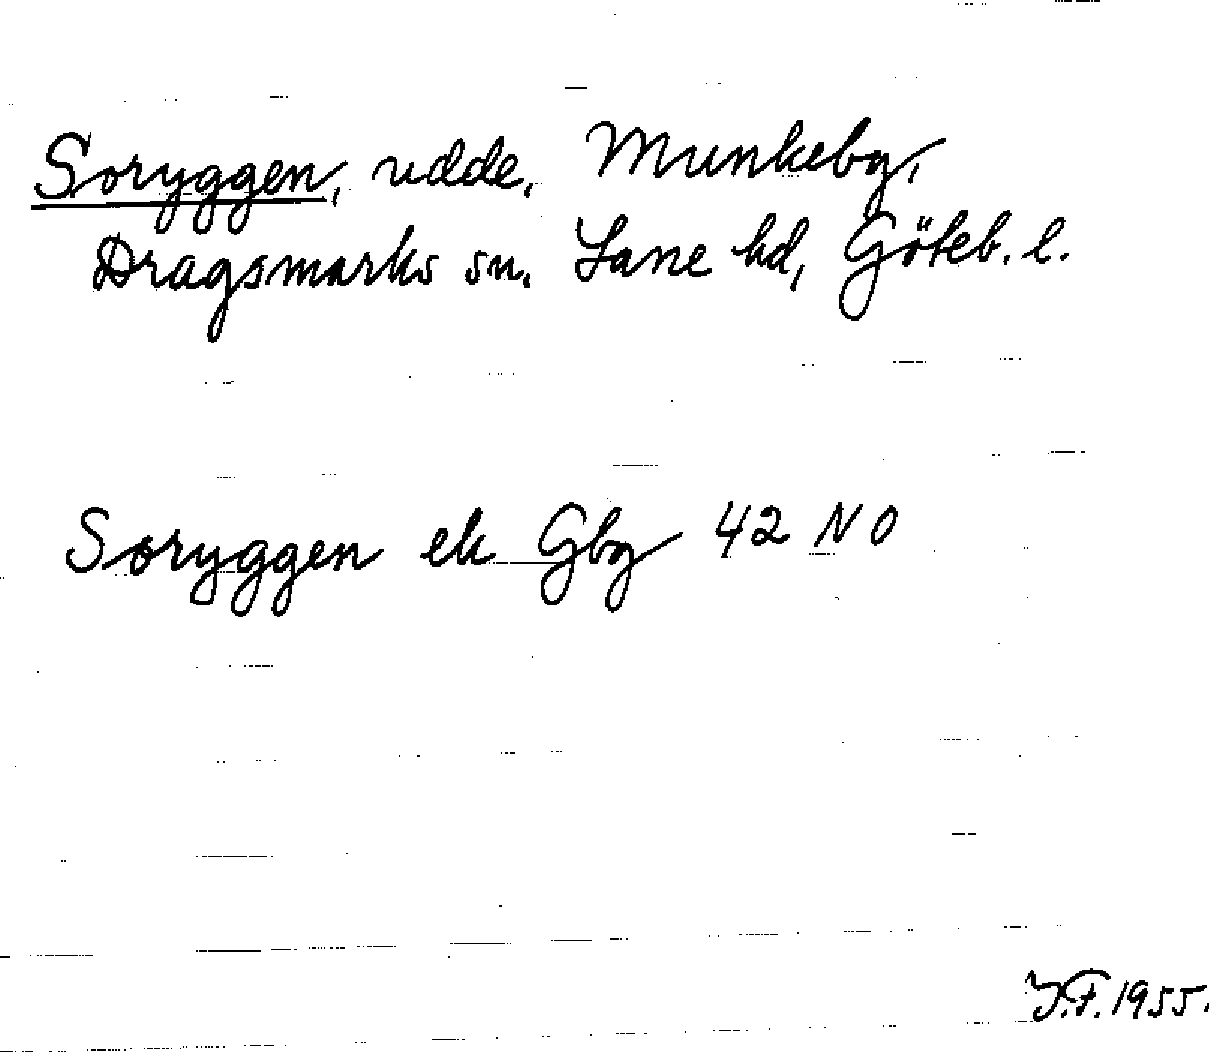 Soryggen, udde, Munkeby,
Dragsmarks sn. Lane hd, Göteb. l.
Soryggen ek Gbg 42 NO
J.F. 1955.